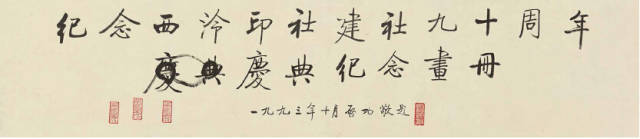 纪念西泠印社建社九十周年
慶典慶典纪念畫冊
一九九三年十月啓功敬题